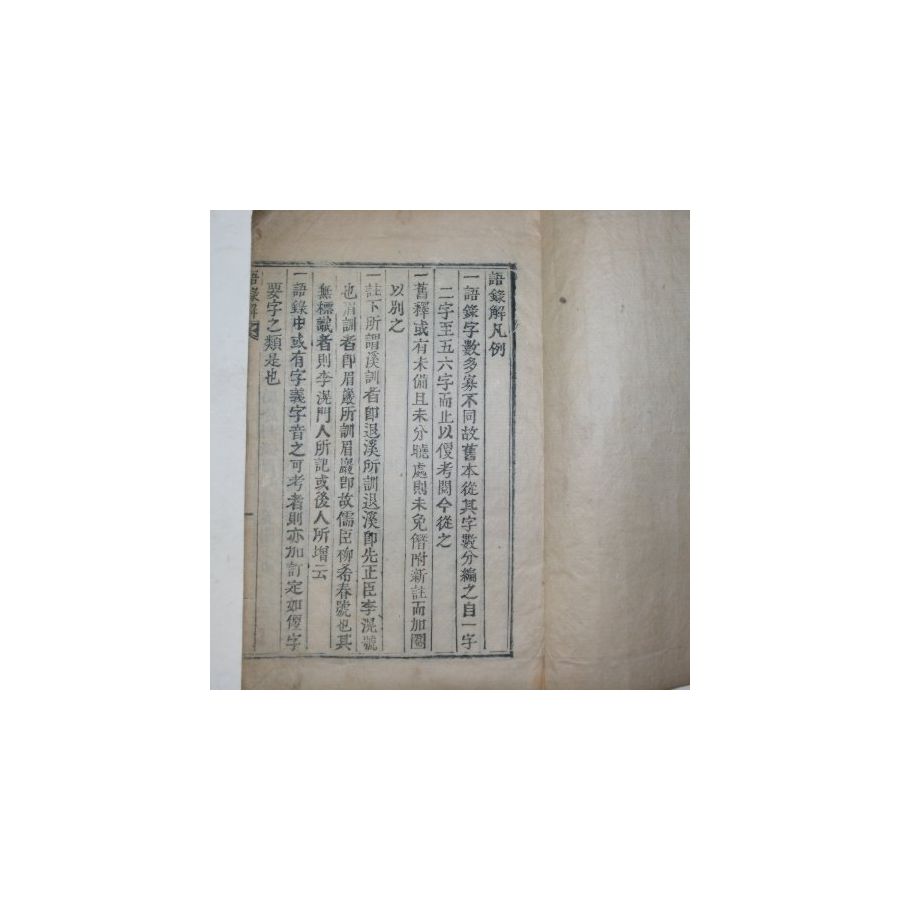 語錄解凡例
一語錄字數多寡不同故舊本從其字數分編之自一字
二字至五六字而止以便考閱今從之
一舊釋或有未備且未分曉處則未免僭附新註而加圈
以別之
一註下所謂溪訓者卽退溪所訓退溪卽先正臣李滉號
也眉訓者卽眉巖所訓眉巖卽故儒臣柳希春號也其
無標識者則李滉門人所記或後人所增云
一語錄中或有字義字音之可考者則亦加訂定如便字
要字之類是也
語錄解